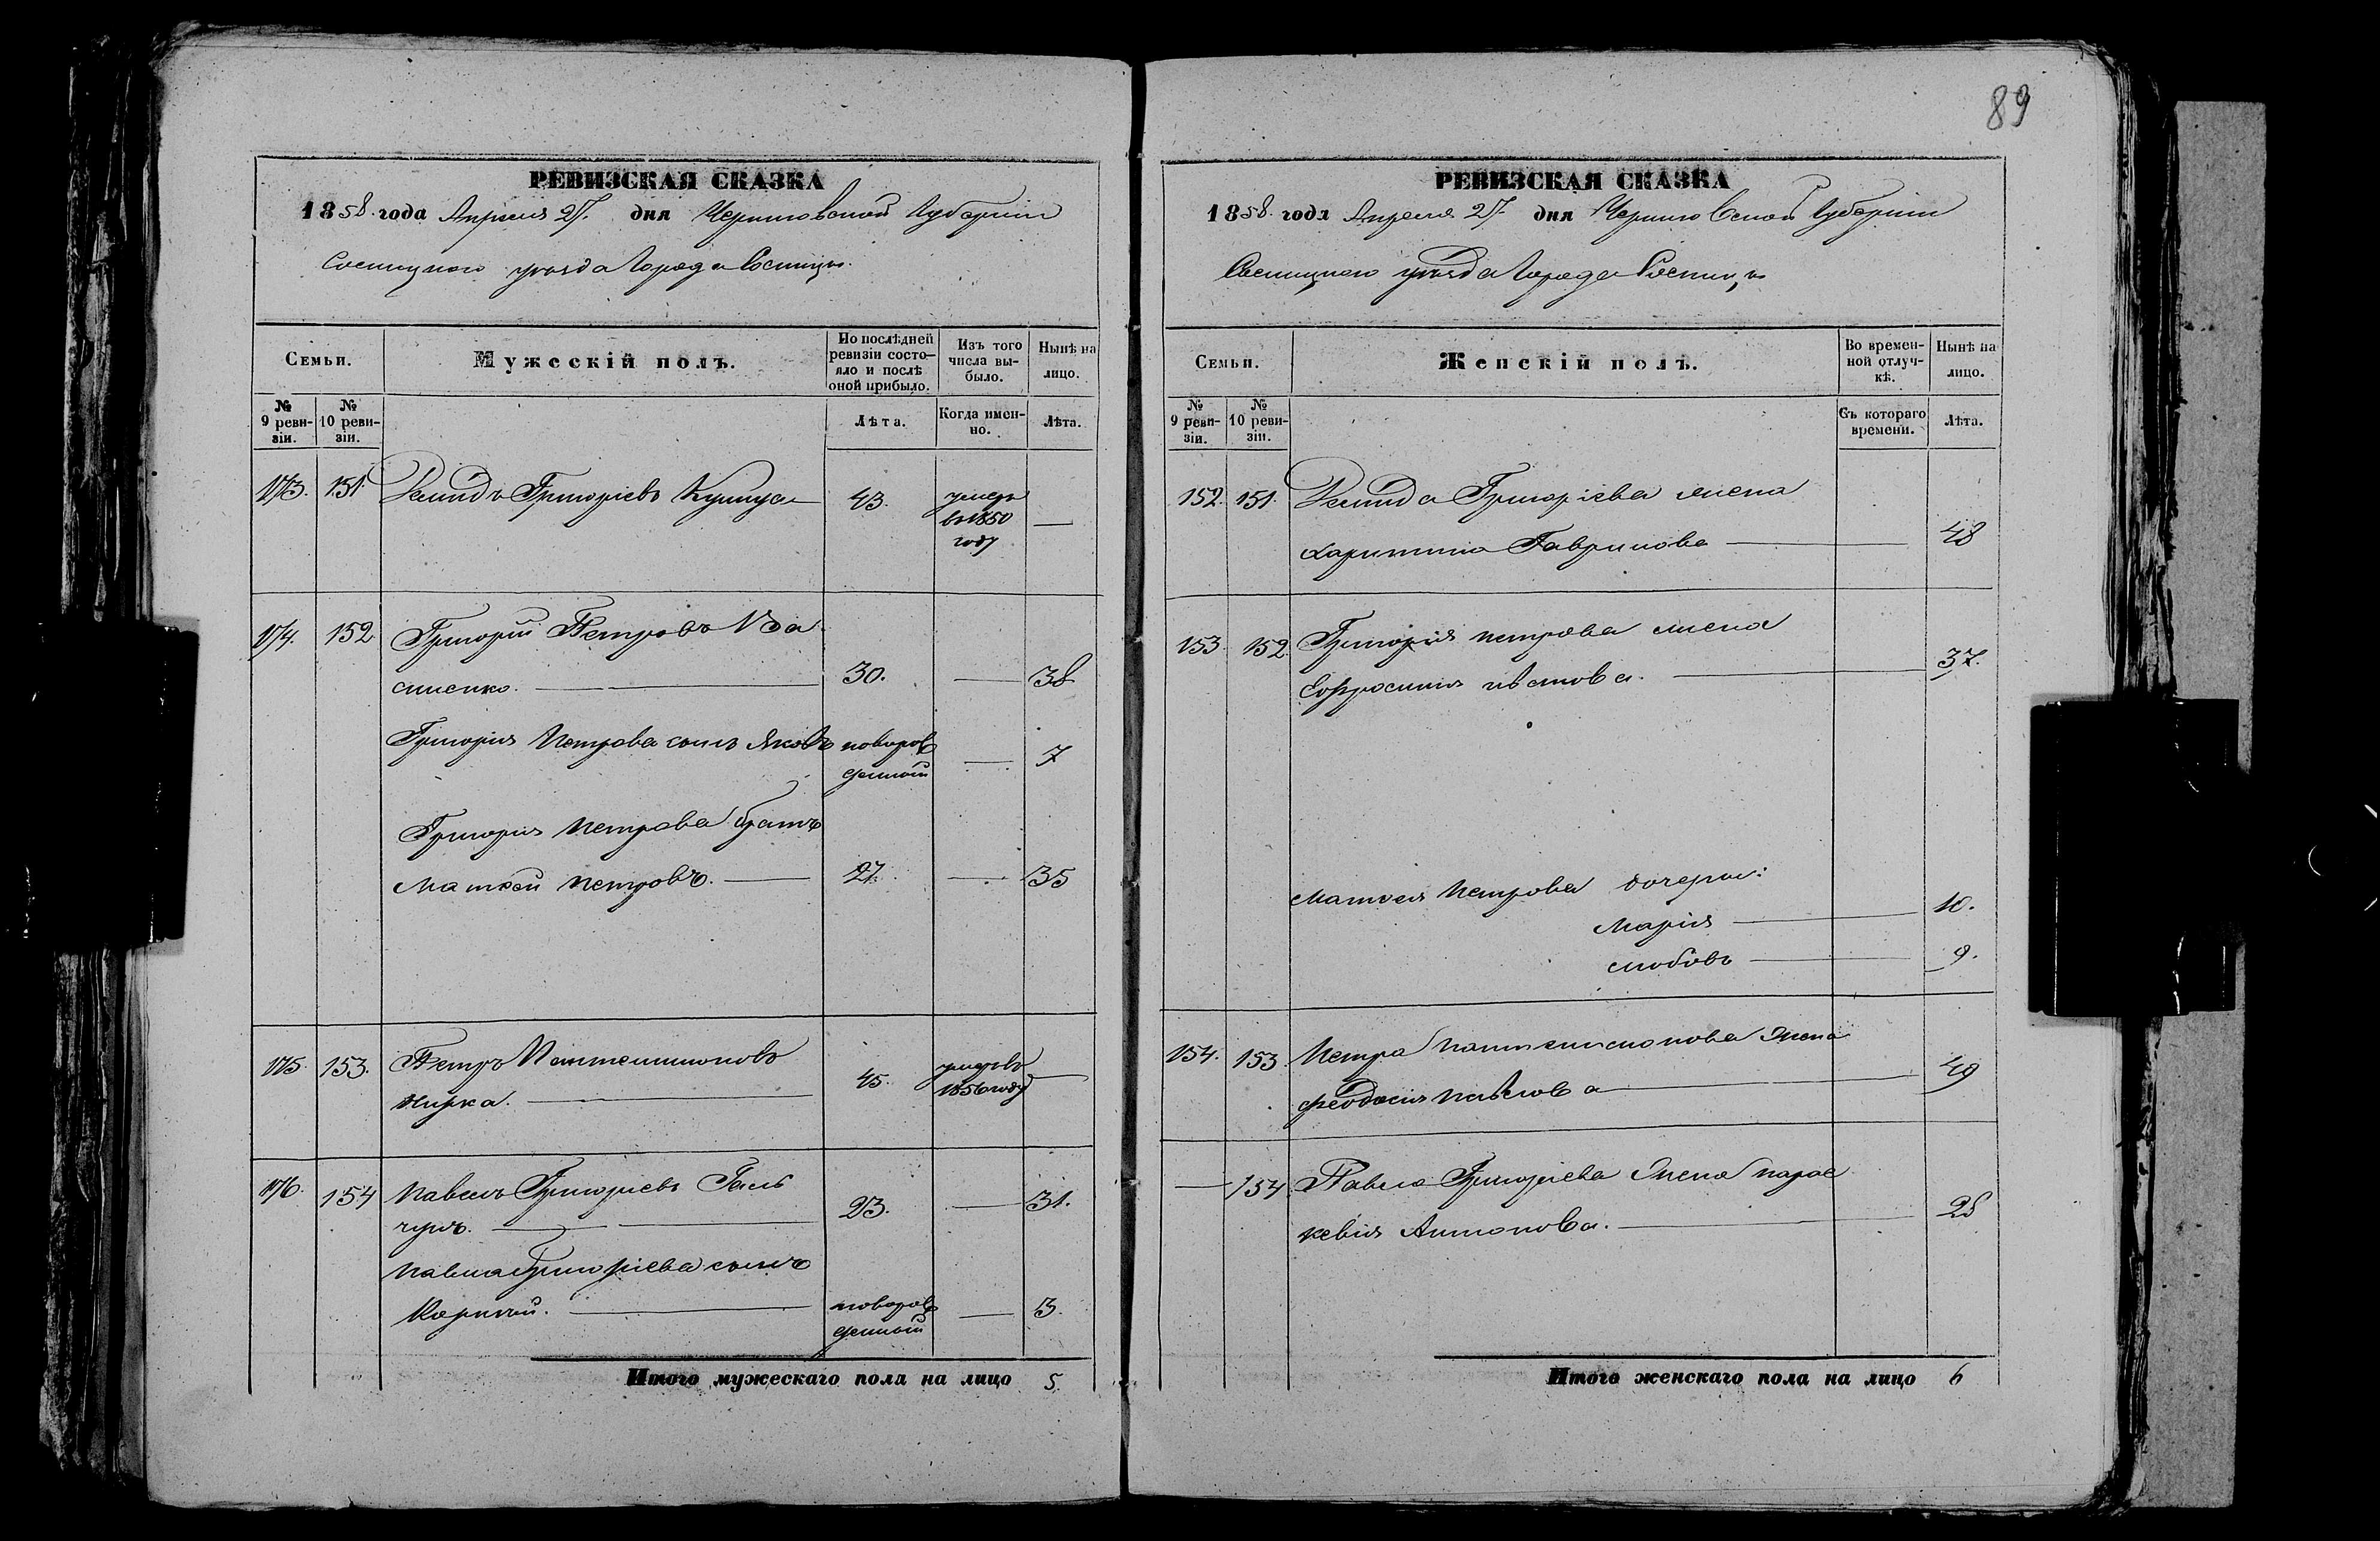 89
РЕВИЗСКАЯ СКАЗКА
1858 года Апреля 27 дня Черниговской Губернии
Сосницкого уезда Города Сосницы.
Семьи.
Мужескій полъ.
По послѣдней ревизіи состояло и послѣ оной прибыло.
Изъ того числа выбыло.
Нынѣ на лицо.
№ 9 ревизіи.
№ 10 ревизіи.
Лѣта.
Когда именно.
Лѣта.
173. 151. Демидъ Григоріевъ 43. умеръ
въ 1850 —
году
174. 152 Григорій Петровъ
30. — 38
Григорія Петрова сынъ Яковъ новорож
денный — 7
Григорія Петрова братъ
Матвей Петровъ. — 27. — 35
175. 153. Петръ Пантелимоновъ
45. умеръ въ
1856 году —
176. 154 Павелъ Григоріевъ Галь
чунъ. — 23. — 31.
Павла Григоріева сынъ
Корнией. — новорож
денный — 3.
Итого мужескаго пола на лицо 5.
РЕВИЗСКАЯ СКАЗКА
1858 года Апреля 27 дня Черниговской Губернии
Сосницкого уезда Города Сосницы
Семьи.
Женскій полъ.
Во временной отлучкѣ.
Нынѣ на лицо.
№ 9 ревизіи.
№ 10 ревизіи.
Съ котораго времени.
Лѣта.
152. 151. Демида Григоріева жена
Харитина Гаврилова — 48
153. 152. Григорія Петрова жена
Ефросинія — 37.
Матвея Петрова дочери:
Марія — 10.
Любовь — 9.
154. 153. Петра Пантелимонова жена
Феодосія Павлова — 49
— 154. Павла Григоріева жена Парас
кевія Антонова. — 28
Итого женскаго пола на лицо 6